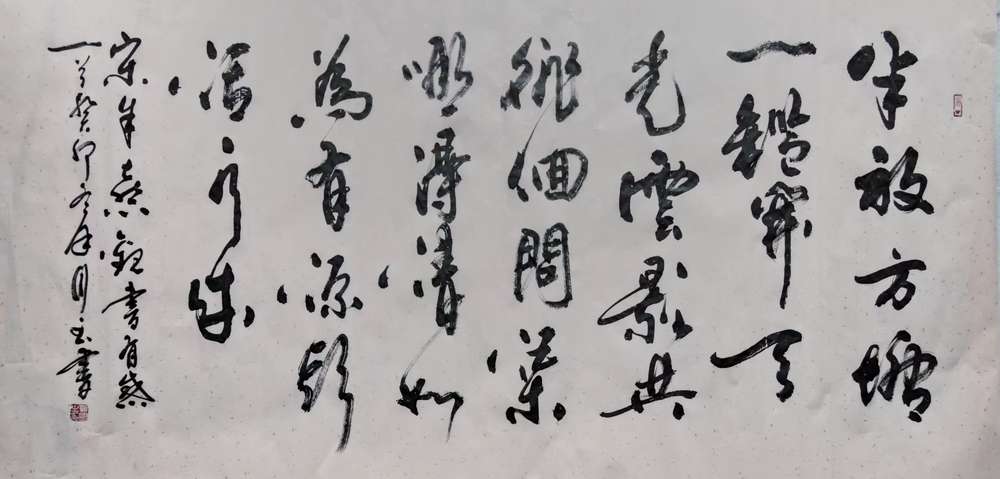 半畝方塘
一鑑開天
光雲影共
徘徊問渠
那得清如
為有源頭
活水來
宋朱熹觀書有感
一首癸卯冬月書